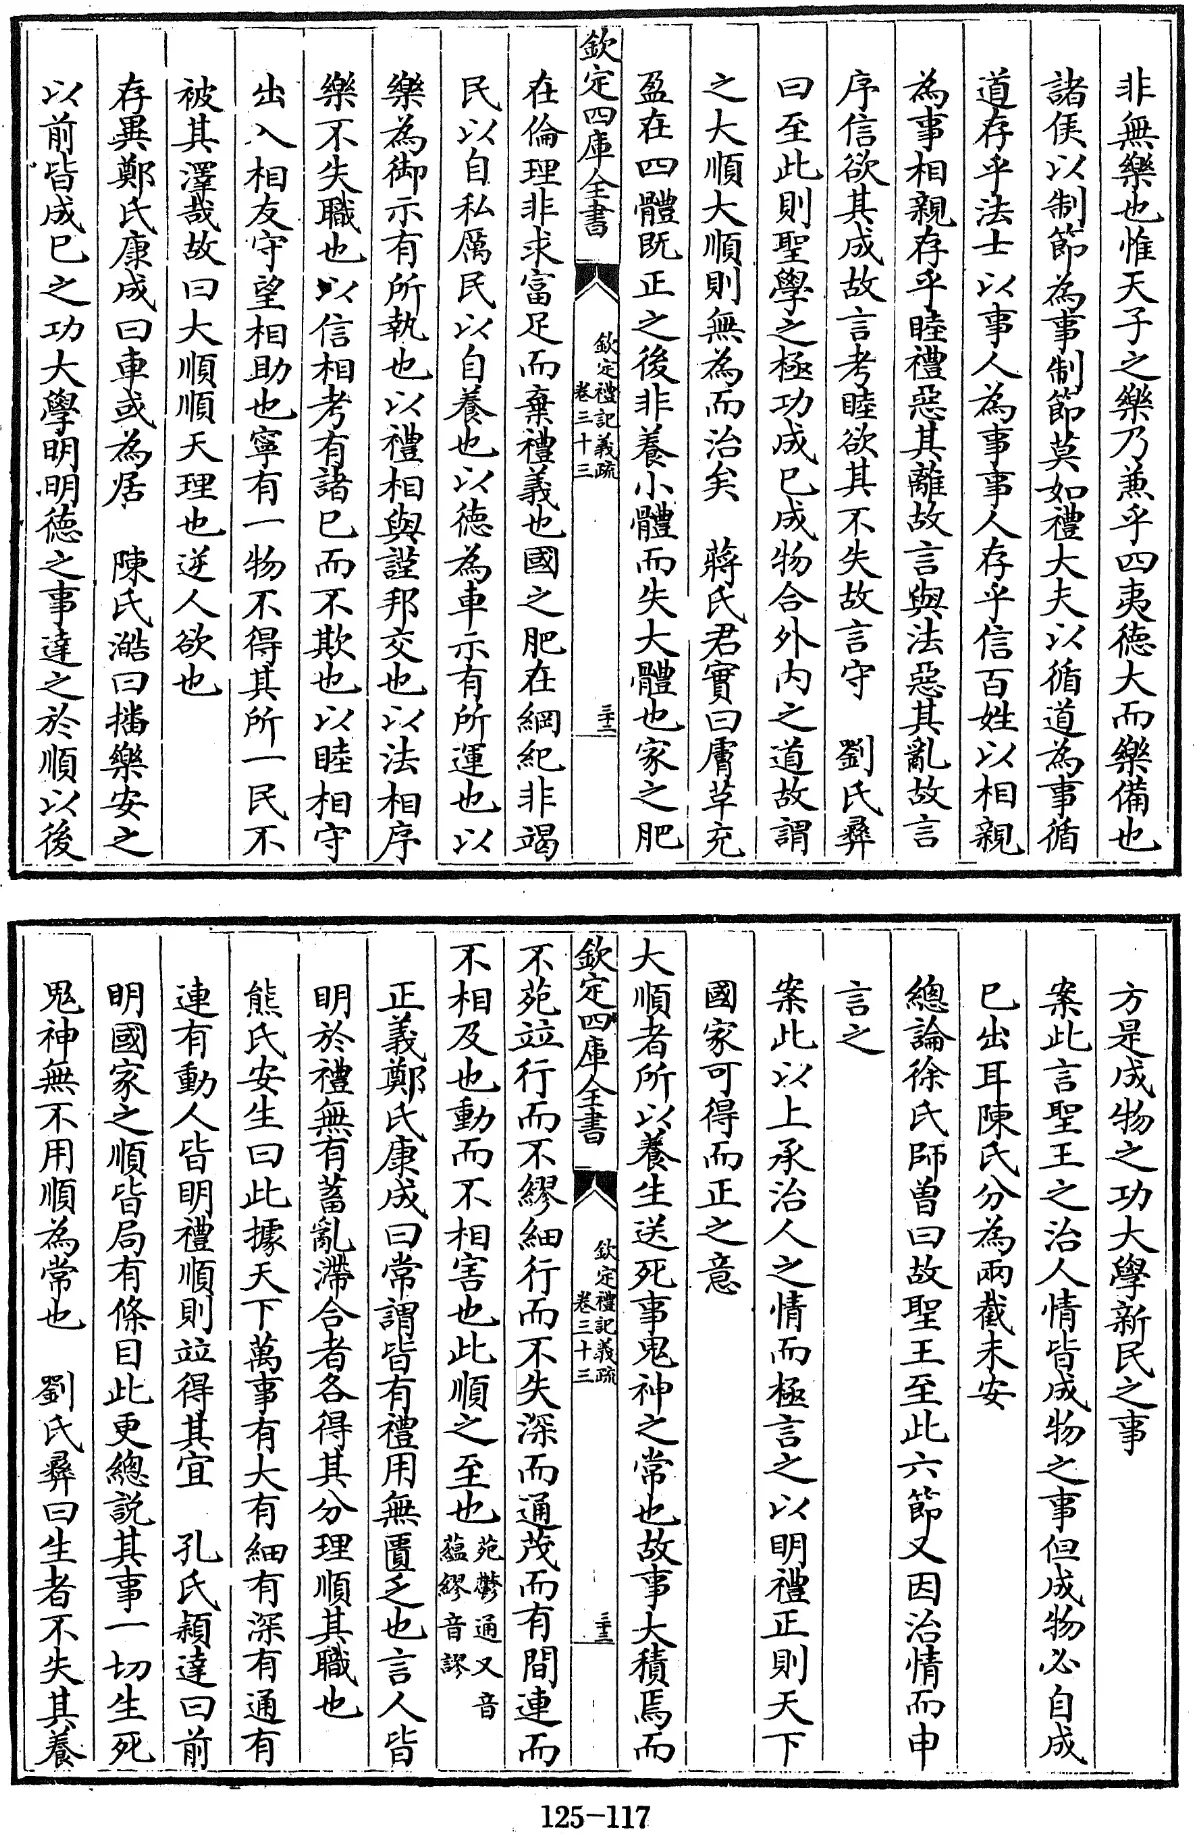 非無樂也惟天子之樂乃兼乎四夷徳大而樂備也
諸侯以制節為事制節莫如禮大夫以循道為事循
道存乎法士以事人為事事人存乎信百姓以相親
為事相親存乎睦禮惡其離故言與法惡其亂故言
序信欲其成故言考睦欲其不失故言守　劉氏彛
曰至此則聖學之極功成已成物合外内之道故謂
之大順大順則無為而治矣　蔣氏君實曰膚革充
盈在四體既正之後非養小體而失大體也家之肥
欽定四庫全書
欽定禮記義疏
卷三十三
三十二
在倫理非求富足而棄禮義也國之肥在綱紀非竭
民以自私厲民以自養也以徳為車示有所運也以
樂為御示有所執也以禮相與謹邦交也以法相序
樂不失職也以信相考有諸已而不欺也以睦相守
出入相友守望相助也寧有一物不得其所一民不
被其澤哉故曰大順順天理也逆人欲也
存異鄭氏康成曰車或為居　陳氏澔曰播樂安之
以前皆成已之功大學明明徳之事達之於順以後
方是成物之功大學新民之事
案此言聖王之治人情皆成物之事但成物必自成
已出耳陳氏分為兩截未安
總論徐氏師曽曰故聖王至此六節又因治情而申
言之
案此以上承治人之情而極言之以明禮正則天下
國家可得而正之意
大順者所以養生送死事鬼神之常也故事大積焉而
欽定四庫全書
欽定禮記義疏
卷三十三
三十三
不苑竝行而不繆細行而不失深而通茂而有間連而
不相及也動而不相害也此順之至也苑鬱通又音
藴繆音謬
正義鄭氏康成曰常謂皆有禮用無匱乏也言人皆
明於禮無有蓄亂滯合者各得其分理順其職也
熊氏安生曰此據天下萬事有大有細有深有通有
連有動人皆明禮順則竝得其宜　孔氏穎達曰前
明國家之順皆局有條目此更總説其事一切生死
鬼神無不用順為常也　劉氏彛曰生者不失其養
125-117